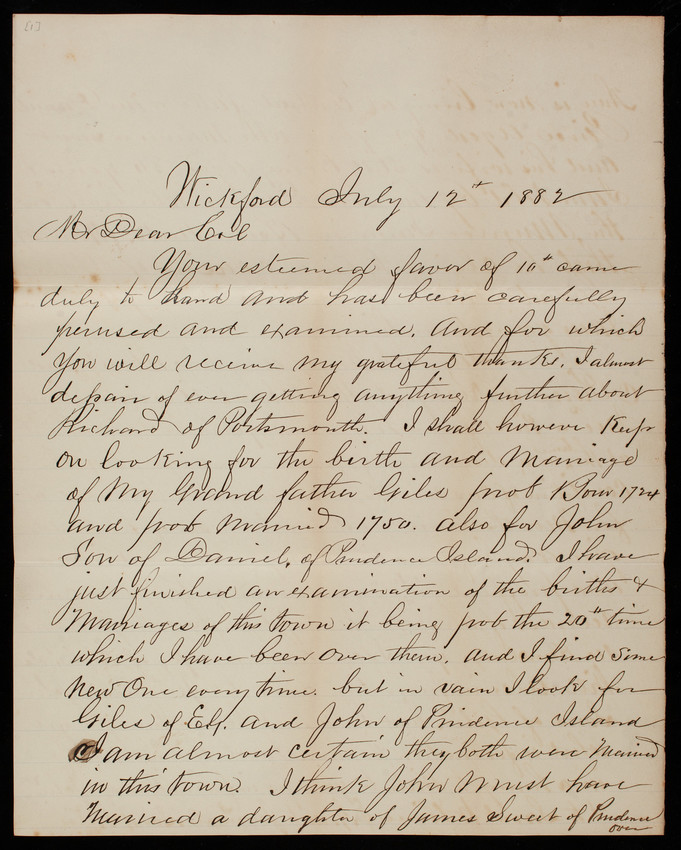 [1]
Wickford July 12th 1882
My Dear Col
Your esteemed favor of 10th came
duly to hand and has been carefully
perused and examined. and for which
you will receive my grateful thanks. I almost
despair of ever getting anything further about
Richard of Portsmouth. I shall however Keep
on looking for the birth and Marriage
of My Grand father Giles prob Born 1724
and prob Married 1750. also for John
Son of Daniel, of Prudence Island. I have
just finished an examination of the births &
Marriages of this town it being prob the 20th time
which I have been over them. and I find Some
New One every time. but in vain I look for
Giles of and John of Prudence Island
I am almost certain they both were Married
in this town. I think John Must have
Married a daughter of James Sweet of Prudence
over